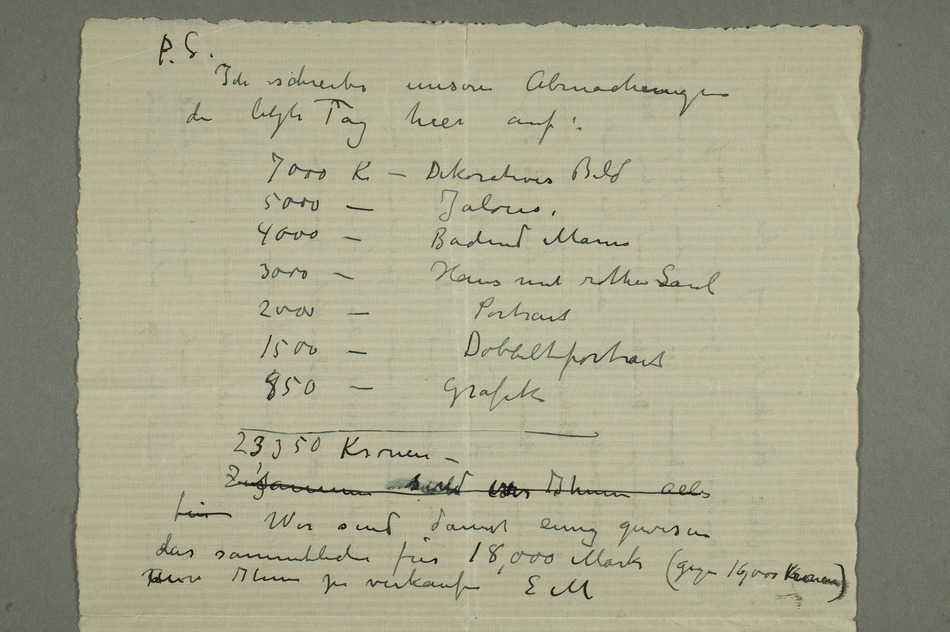 P.S.
Ich schreibe unsere Abmachungen
de letzte Tag hier auf:
7000 Kr – Dekoratives Bild
5000 – Jalousi.
4000 – Badend Mann
3000 – Haus mit rother Saul
2000 – Portrait
1500 – Dobbeltportrait
850 – Grafik
23350 Kronen –
Zusammen sind von Ihnen alls
für Wir sind damit einig gewesen
das sammtliche für 18,000 Mark (gegen 16,000 Kronen)
Ihnen zu verkaufen E M